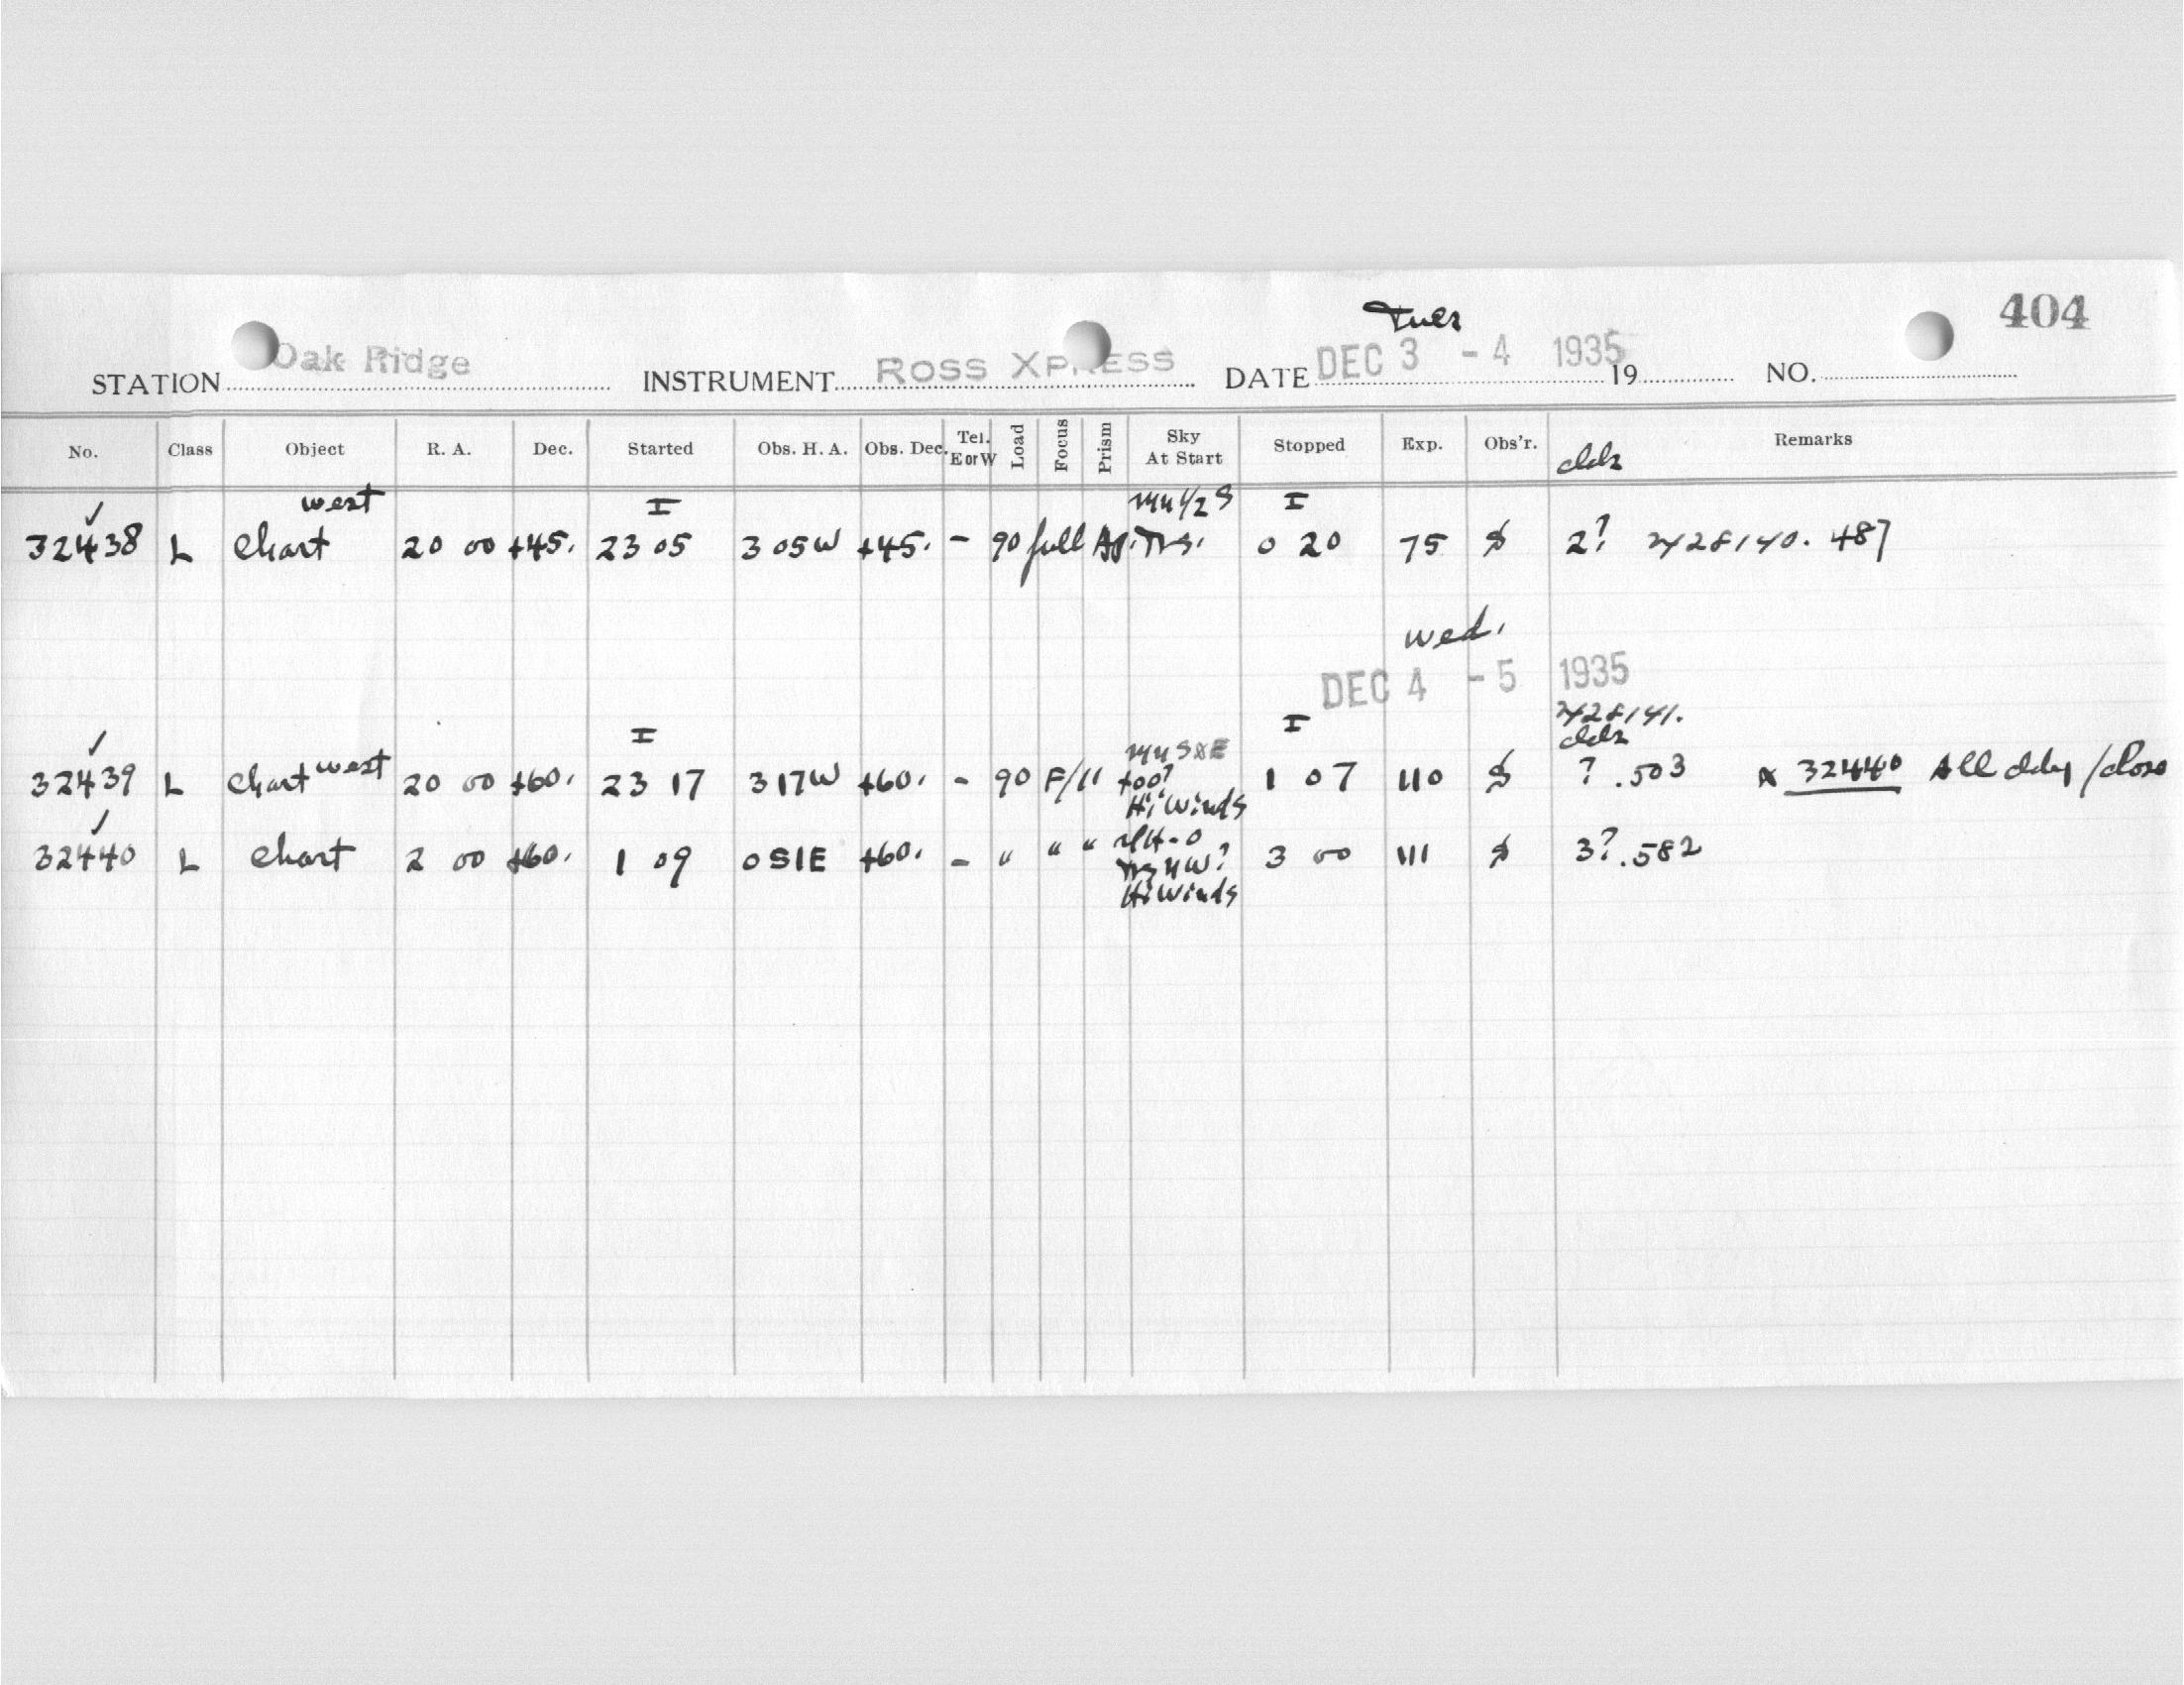 404
Tues
STATION Oak Ridge INSTRUMENT ROSS XPRESS DATE DEC 3 - 4 1935 19 NO.
No. Class Object R. A. Dec. Started Obs. H. A. Obs. Dec. Tel. E or W Load Focus Prism Sky At Start Stopped Exp. Obs'r. Remarks
clds
west I I
32438 L Chart 20 00 +45. 23 05 3 05W +45. - 90 full Ap. 0 20 75 2? 2428140. 487
wed.
DEC 4 - 5 1935
2428141.
I I clds
32439 L Chart west 20 00 +60. 23 17 3 17W +60. - 90 F/11 too? 1 07 110 ? .503 x 32440 All
Hi Winds
32440 L Chart 2 00 +60. 1 09 0 51E +60. - " " " 3 00 111 3? .582
Hi Winds